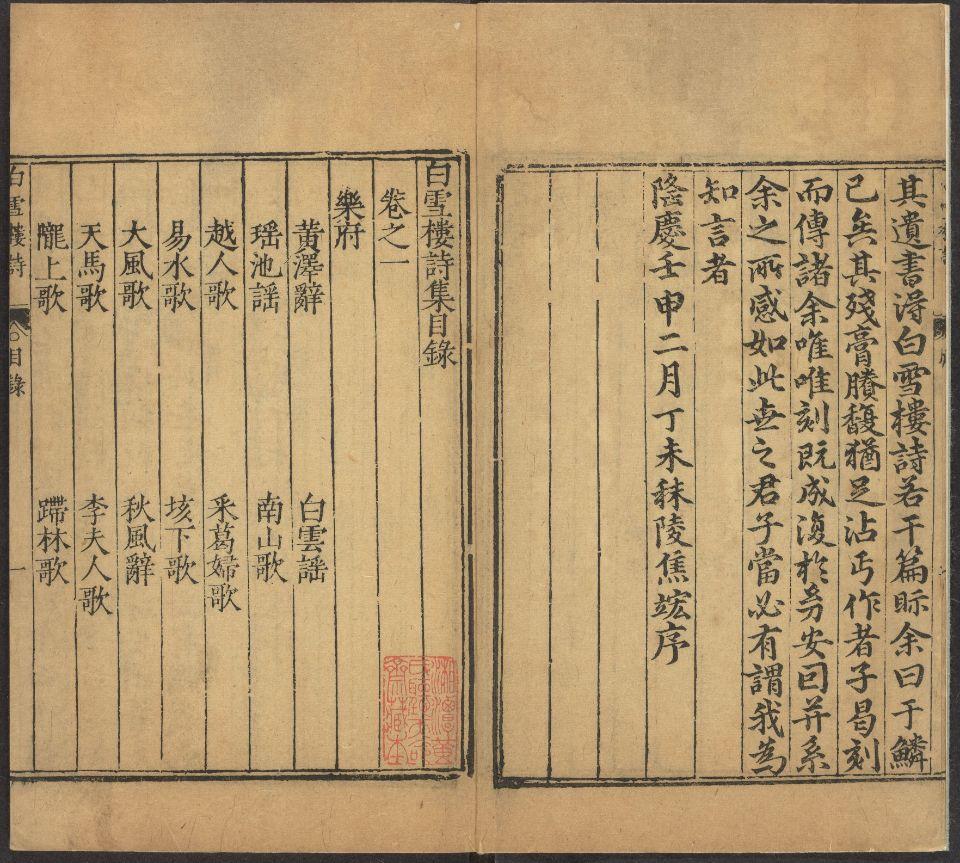 其遺書淂白雪樓詩若干篇眎余曰于鱗
已矣其殘膏賸馥猶足沾丐作者子曷刻
而傳諸余唯唯刻既成復於芳安囙并系
余之所感如此世之君子當必有謂我為
知言者
隆慶壬申二月丁未秣陵焦竑序
白雪樓詩集目錄
卷之一
樂府
黃澤辭 白雲謡
瑶池謡 南山歌
越人歌 采葛婦歌
易水歌 垓下歌
大風歌 秋風辭
天馬歌 李夫人歌
隴上歌 蹛林歌
白雪樓詩 目錄 一